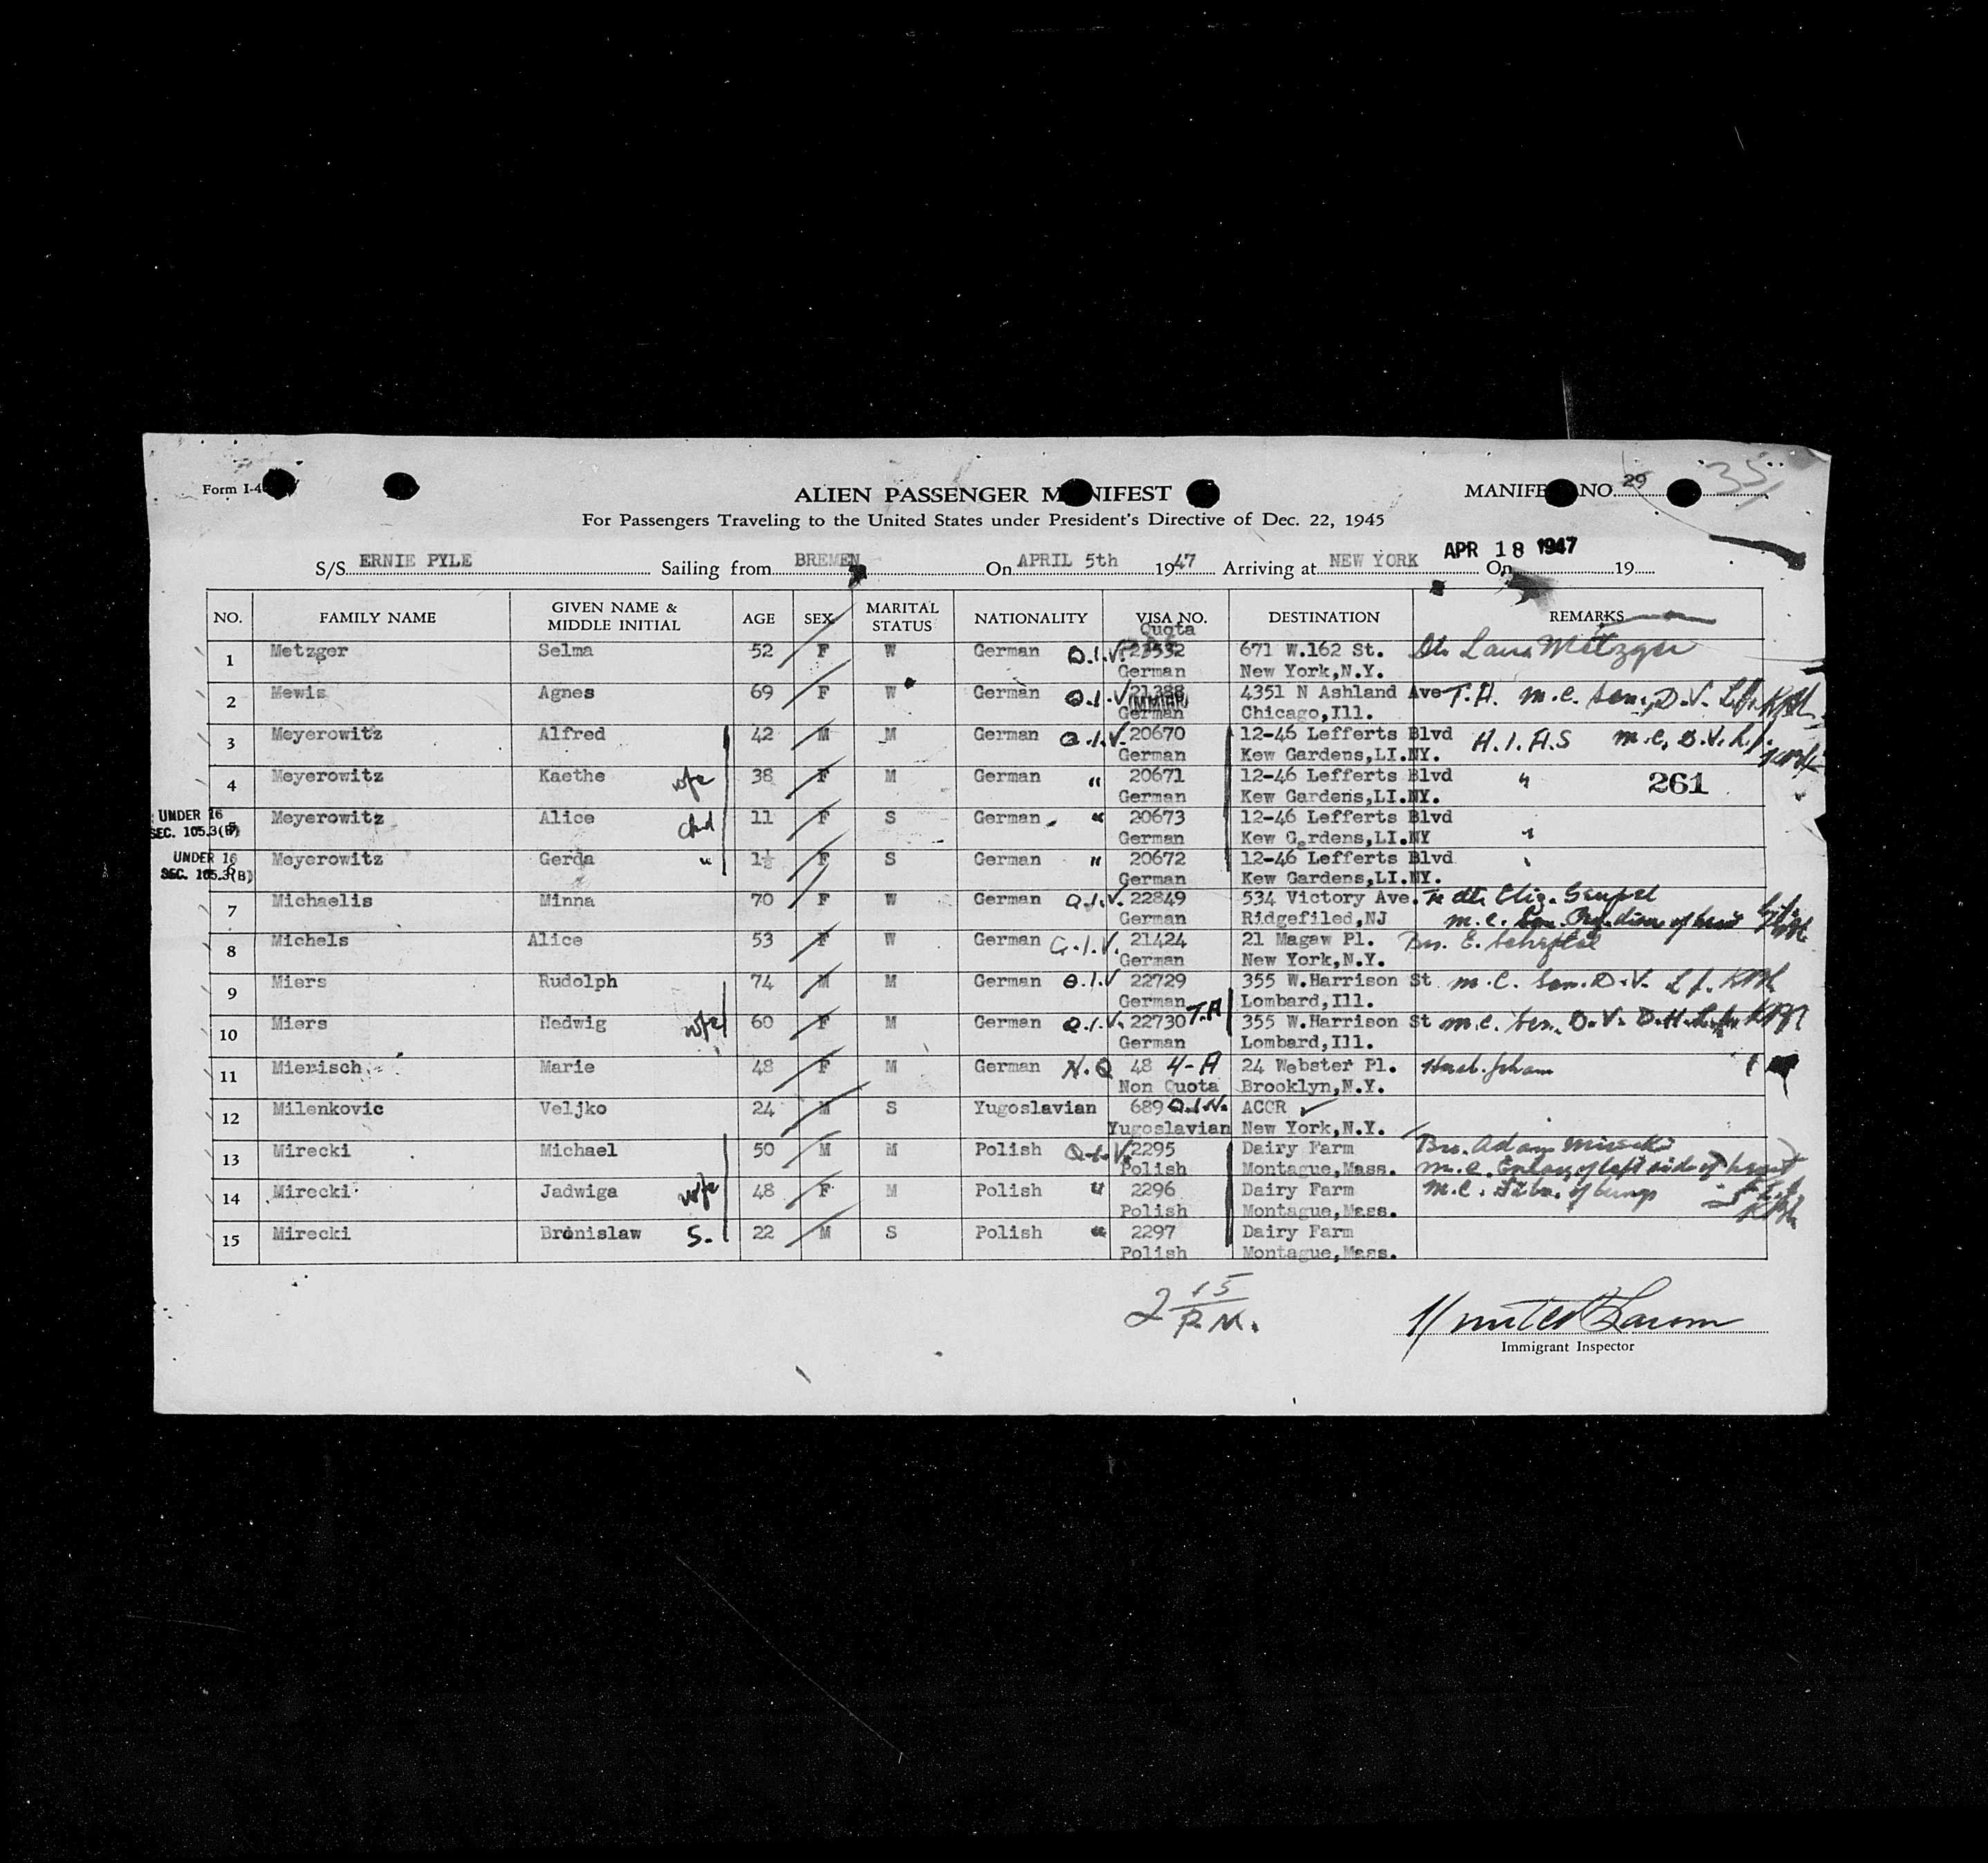 Form I-4
ALIEN PASSENGER M NIFEST
MANIFE NO. 29 35
For Passengers Traveling to the United States under President's Directive of Dec. 22, 1945
S/S ERNIE PYLE Sailing from BREMEN On APRIL 5th 1947 Arriving at NEW YORK On APR 18 1947 19
NO. FAMILY NAME GIVEN NAME & MIDDLE INITIAL AGE SEX MARITAL STATUS NATIONALITY VISA NO. DESTINATION REMARKS
Quota
1 Metzger Selma 52 F W German Q.I.V. 23532 671 W.162 St. Metzger
German New York,N.Y.
2 Mewis Agnes 69 F W German Q.I.V. 21388 4351 N Ashland Ave T.A. m.c. Sen., D.V. L.f. KPH
German Chicago,Ill.
3 Meyerowitz Alfred 42 M M German Q.I.V. 20670 12-46 Lefferts Blvd H.I.A.S m.c. D.V. L.f.
German Kew Gardens,LI.NY.
4 Meyerowitz Kaethe wfe 38 F M German " 20671 12-46 Lefferts Blvd " 261
German Kew Gardens,LI.NY.
UNDER 16
SEC. 105.3(B)
5 Meyerowitz Alice chd 11 F S German " 20673 12-46 Lefferts Blvd
German Kew Gardens,LI.NY "
UNDER 16
SEC. 105.3(B)
6 Meyerowitz Gerda " 1½ F S German " 20672 12-46 Lefferts Blvd "
German Kew Gardens,LI.NY.
7 Michaelis Minna 70 F W German Q.I.V. 22849 534 Victory Ave.
German Ridgefiled,NJ m.c. Sen. of heart
8 Michels Alice 53 F W German Q.I.V. 21424 21 Magaw Pl. E.
German New York,N.Y.
9 Miers Rudolph 74 M M German Q.I.V 22729 355 W.Harrison St m.c. Sen. D.V. L.f. KPH
German Lombard,Ill.
10 Miers Hedwig wfe 60 F M German Q.I.V. 22730 T.A 355 W.Harrison St m.c. Sen. D.V.
German Lombard,Ill.
11 Mienisch Marie 48 F M German N.Q 48 4-A 24 Webster Pl.
Non Quota Brooklyn,N.Y.
12 Milenkovic Veljko 24 M S Yugoslavian 689 Q.I.V. ACCR
Yugoslavian New York,N.Y.
13 Mirecki Michael 50 M M Polish Q.I.V. 2295 Dairy Farm Bro. Adam Mirecki
Polish Montague,Mass. m.c. Enlarg. of left side of heart
14 Mirecki Jadwiga wfe 48 F M Polish " 2296 Dairy Farm m.c. of lungs
Polish Montague,Mass.
15 Mirecki Bronislaw S. 22 M S Polish " 2297 Dairy Farm
Polish Montague,Mass.
2 15
P.M.
Immigrant Inspector